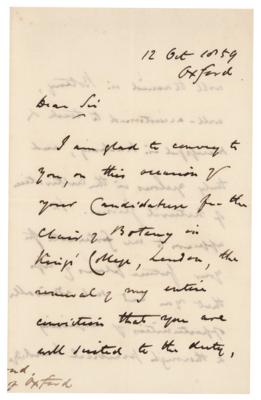 12 Oct 1859
Oxford
Dear Sir
I am glad to convey to
you, on this occasion of
your Candidature for the
Chair of Botany in
King's College, London, the
renewal of my entire
conviction that you are
well suited to the duty,
Oxford